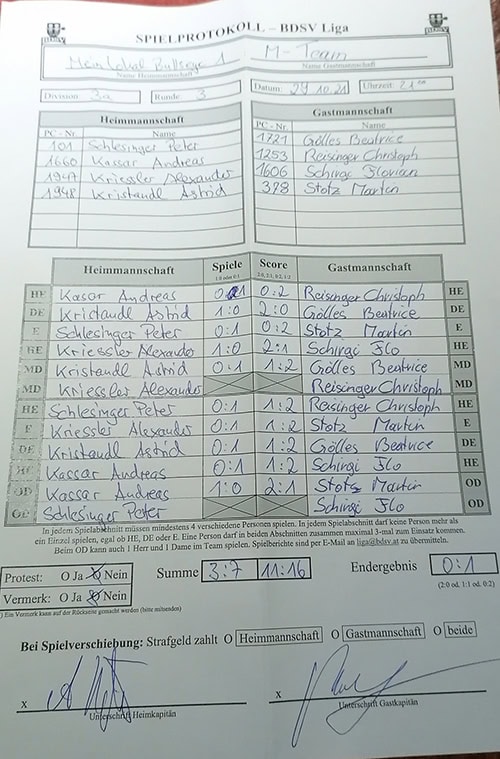 SPIELPROTOKOLL – BDSV Liga
Meinlokal Bullseye 1 M-Team
Name Heimmannschaft Name Gastmannschaft
Division: 3a Runde: 3 Datum: 29.10.21 Uhrzeit: 21:00
Heimmannschaft Gastmannschaft
PC - Nr. Name PC - Nr. Name
101 Schlesinger Peter 1721 Gölles Beatrice
1660 Kassar Andreas 1253 Reisinger Christoph
1947 Kriessler Alexander 1606 Schirgi Florian
1948 Kristandl Astrid 378 Stotz Martin
Heimmannschaft Spiele Score Gastmannschaft
1:0 oder 0:1 2:0, 2:1, 0:2, 1:2
HE Kasar Andreas 0:1 0:2 Reisinger Christoph HE
DE Kristandl Astrid 1:0 2:0 Gölles Beatrice DE
E Schlesinger Peter 0:1 0:2 Stotz Martin E
HE Kriessler Alexander 1:0 2:1 Schirgi Flo HE
MD Kristandl Astrid 0:1 1:2 Gölles Beatrice MD
MD Kriessler Alexander Reisinger Christoph MD
HE Schlesinger Peter 0:1 1:2 Reisinger Christoph HE
E Kriessler Alexander 0:1 1:2 Stotz Martin E
DE Kristandl Astrid 0:1 1:2 Gölles Beatrice DE
HE Kassar Andreas 0:1 1:2 Schirgi Flo HE
OD Kassar Andreas 1:0 2:1 Stotz Martin OD
OD Schlesinger Peter Schirgi Flo OD
In jedem Spielabschnitt müssen mindestens 4 verschiedene Personen spielen. In jedem Spielabschnitt darf keine Person mehr als
ein Einzel spielen, egal ob HE, DE oder E. Eine Person darf in beiden Abschnitten zusammen maximal 3-mal zum Einsatz kommen.
Beim OD kann auch 1 Herr und 1 Dame im Team spielen. Spielberichte sind per E-Mail an liga@bdsv.at zu übermitteln.
Protest: O Ja O Nein Summe 3:7 11:16 Endergebnis 0:1
Vermerk: O Ja O Nein (2:0 od. 1:1 od. 0:2)
) Ein Vermerk kann auf der Rückseite gemacht werden (bitte mitsenden)
Bei Spielverschiebung: Strafgeld zahlt O Heimmannschaft O Gastmannschaft O beide
x x
Unterschrift Heimkapitän Unterschrift Gastkapitän